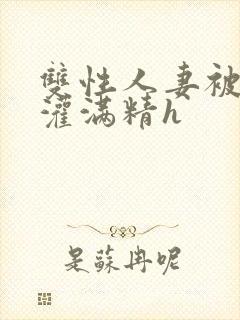 雙性人妻被
灌滿精h
是蘇冉呢